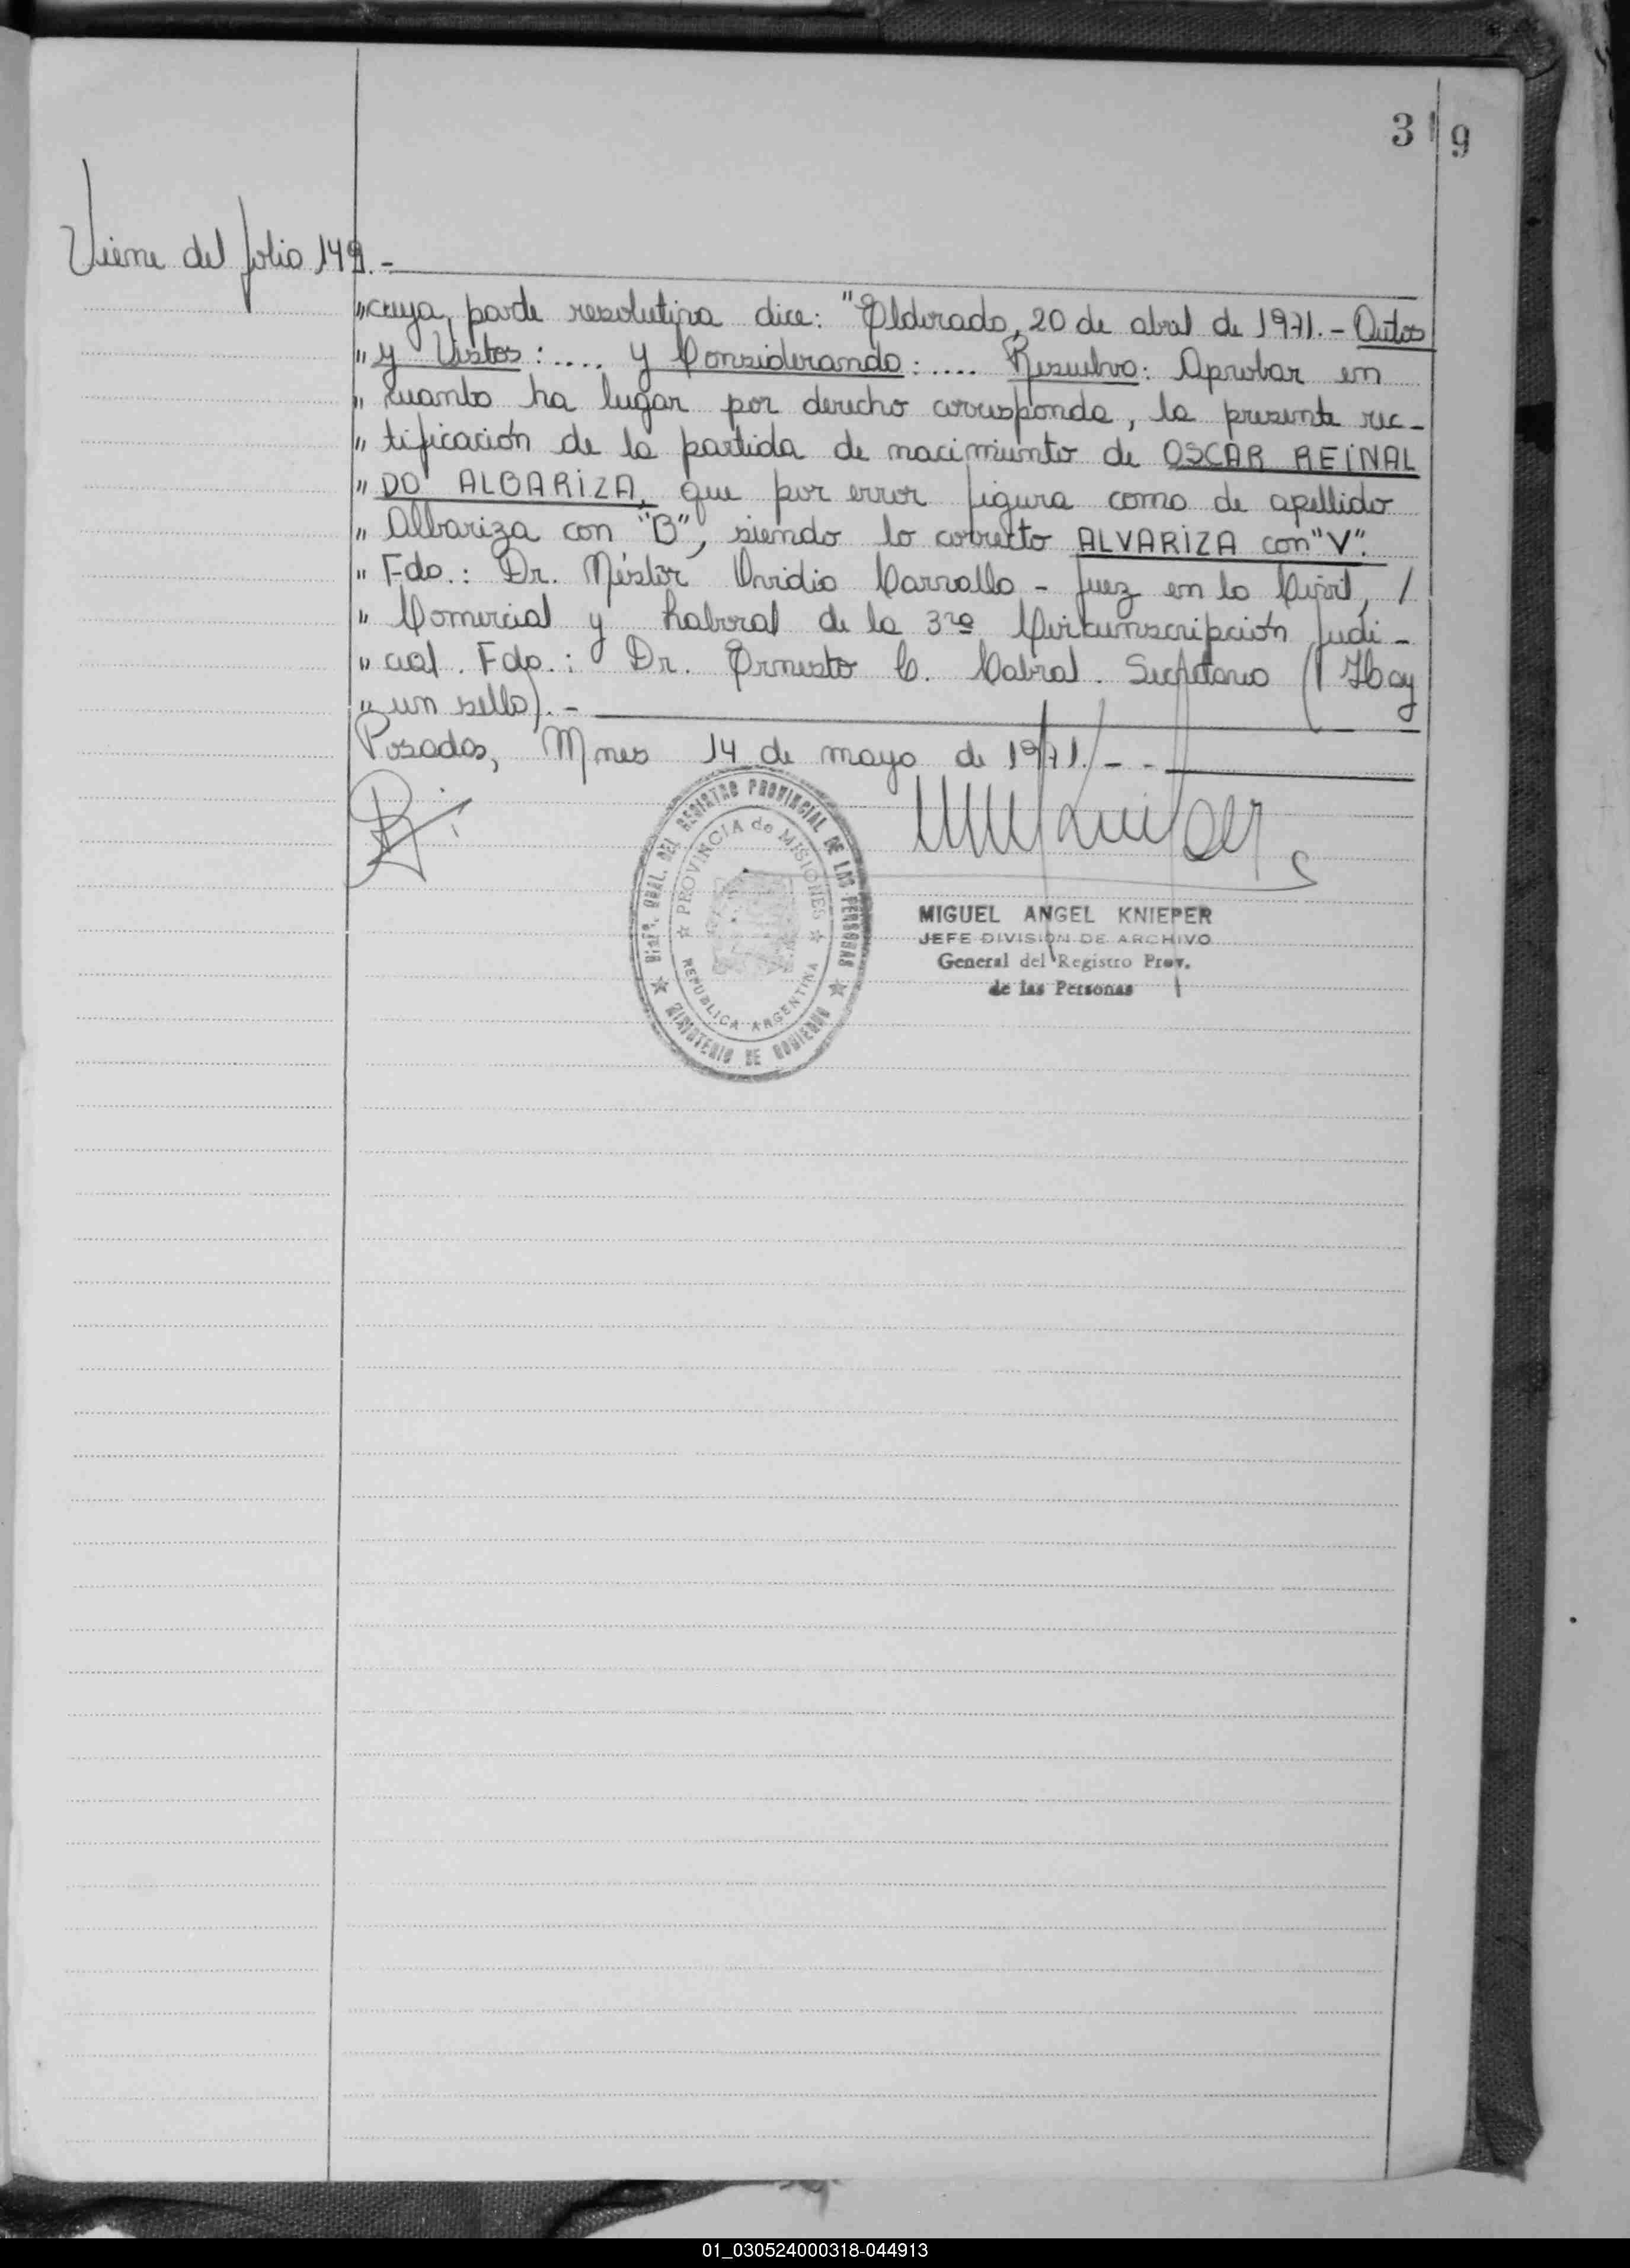 319
Viene del folio 149.-
"cuya parte resolutiva dice: "Eldorado, 20 de abril de 1971.- Autos
" y Vistos: .... y Considerando: .... Resuelvo: Aprobar en
" cuanto ha lugar por derecho corresponda, la presente rec-
" tificación de la partida de nacimiento de OSCAR REINAL
" DO ALBARIZA, que por error figura como de apellido
" Albariza con "B", siendo lo correcto ALVARIZA con "V".
" Fdo.: Dr. Néstor Ovidio Carvallo - Juez en lo Civil, /
" Comercial y Laboral de la 3ra Circunscripción Judi-
" cial. Fdo.: Dr. Ernesto C. Cabral. Secretario (Hay
" un sello).-
Posadas, Mnes 14 de mayo de 1971.- -
DIREC. GRAL. DEL REGISTRO PROVINCIAL DE LAS PERSONAS
PROVINCIA de MISIONES
REPUBLICA ARGENTINA
MINISTERIO DE GOBIERNO
MIGUEL ANGEL KNIEPER
JEFE DIVISION DE ARCHIVO
General del Registro Prov.
de las Personas
01_030524000318-044913